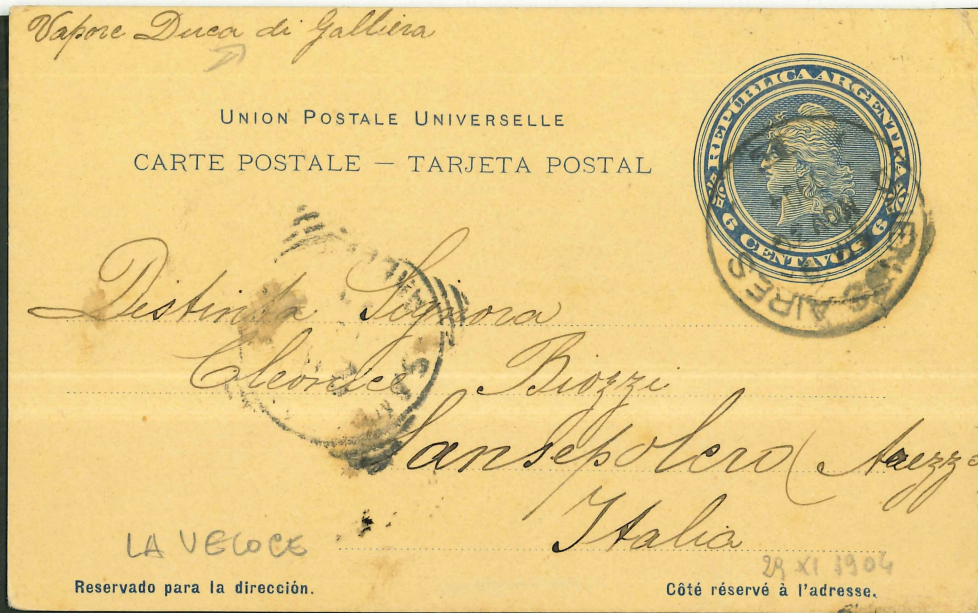 Vapore Duca di Galliera
UNION POSTALE UNIVERSELLE
CARTE POSTALE — TARJETA POSTAL
REPÚBLICA ARGENTINA
6 CENTAVOS 6
BUENOS AIRES
Distinta Signora
Cleonice Biozzi
Sansepolcro (Arezzo
Italia
LA VELOCE
29 XI 1904
Reservado para la dirección.
Côté réservé à l'adresse.